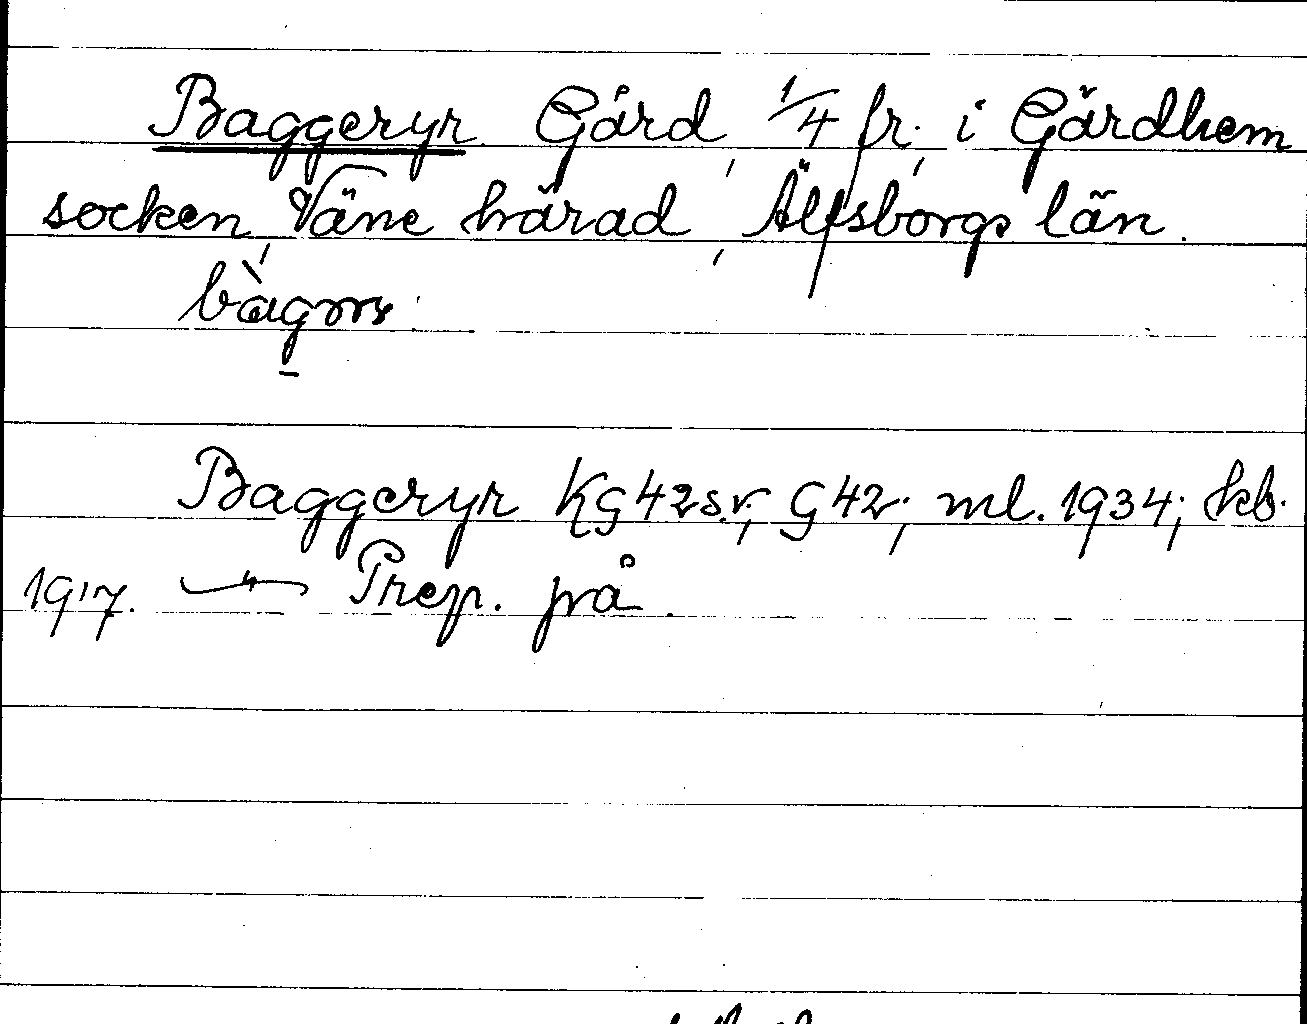 Baggeryr Gård, 1/4 fr., i Gärdhem
socken, Väne härad, Älfsborgs län.
Baggeryr KG42s.v; G42; ml. 1934; kb.
1917. — Prep. på.